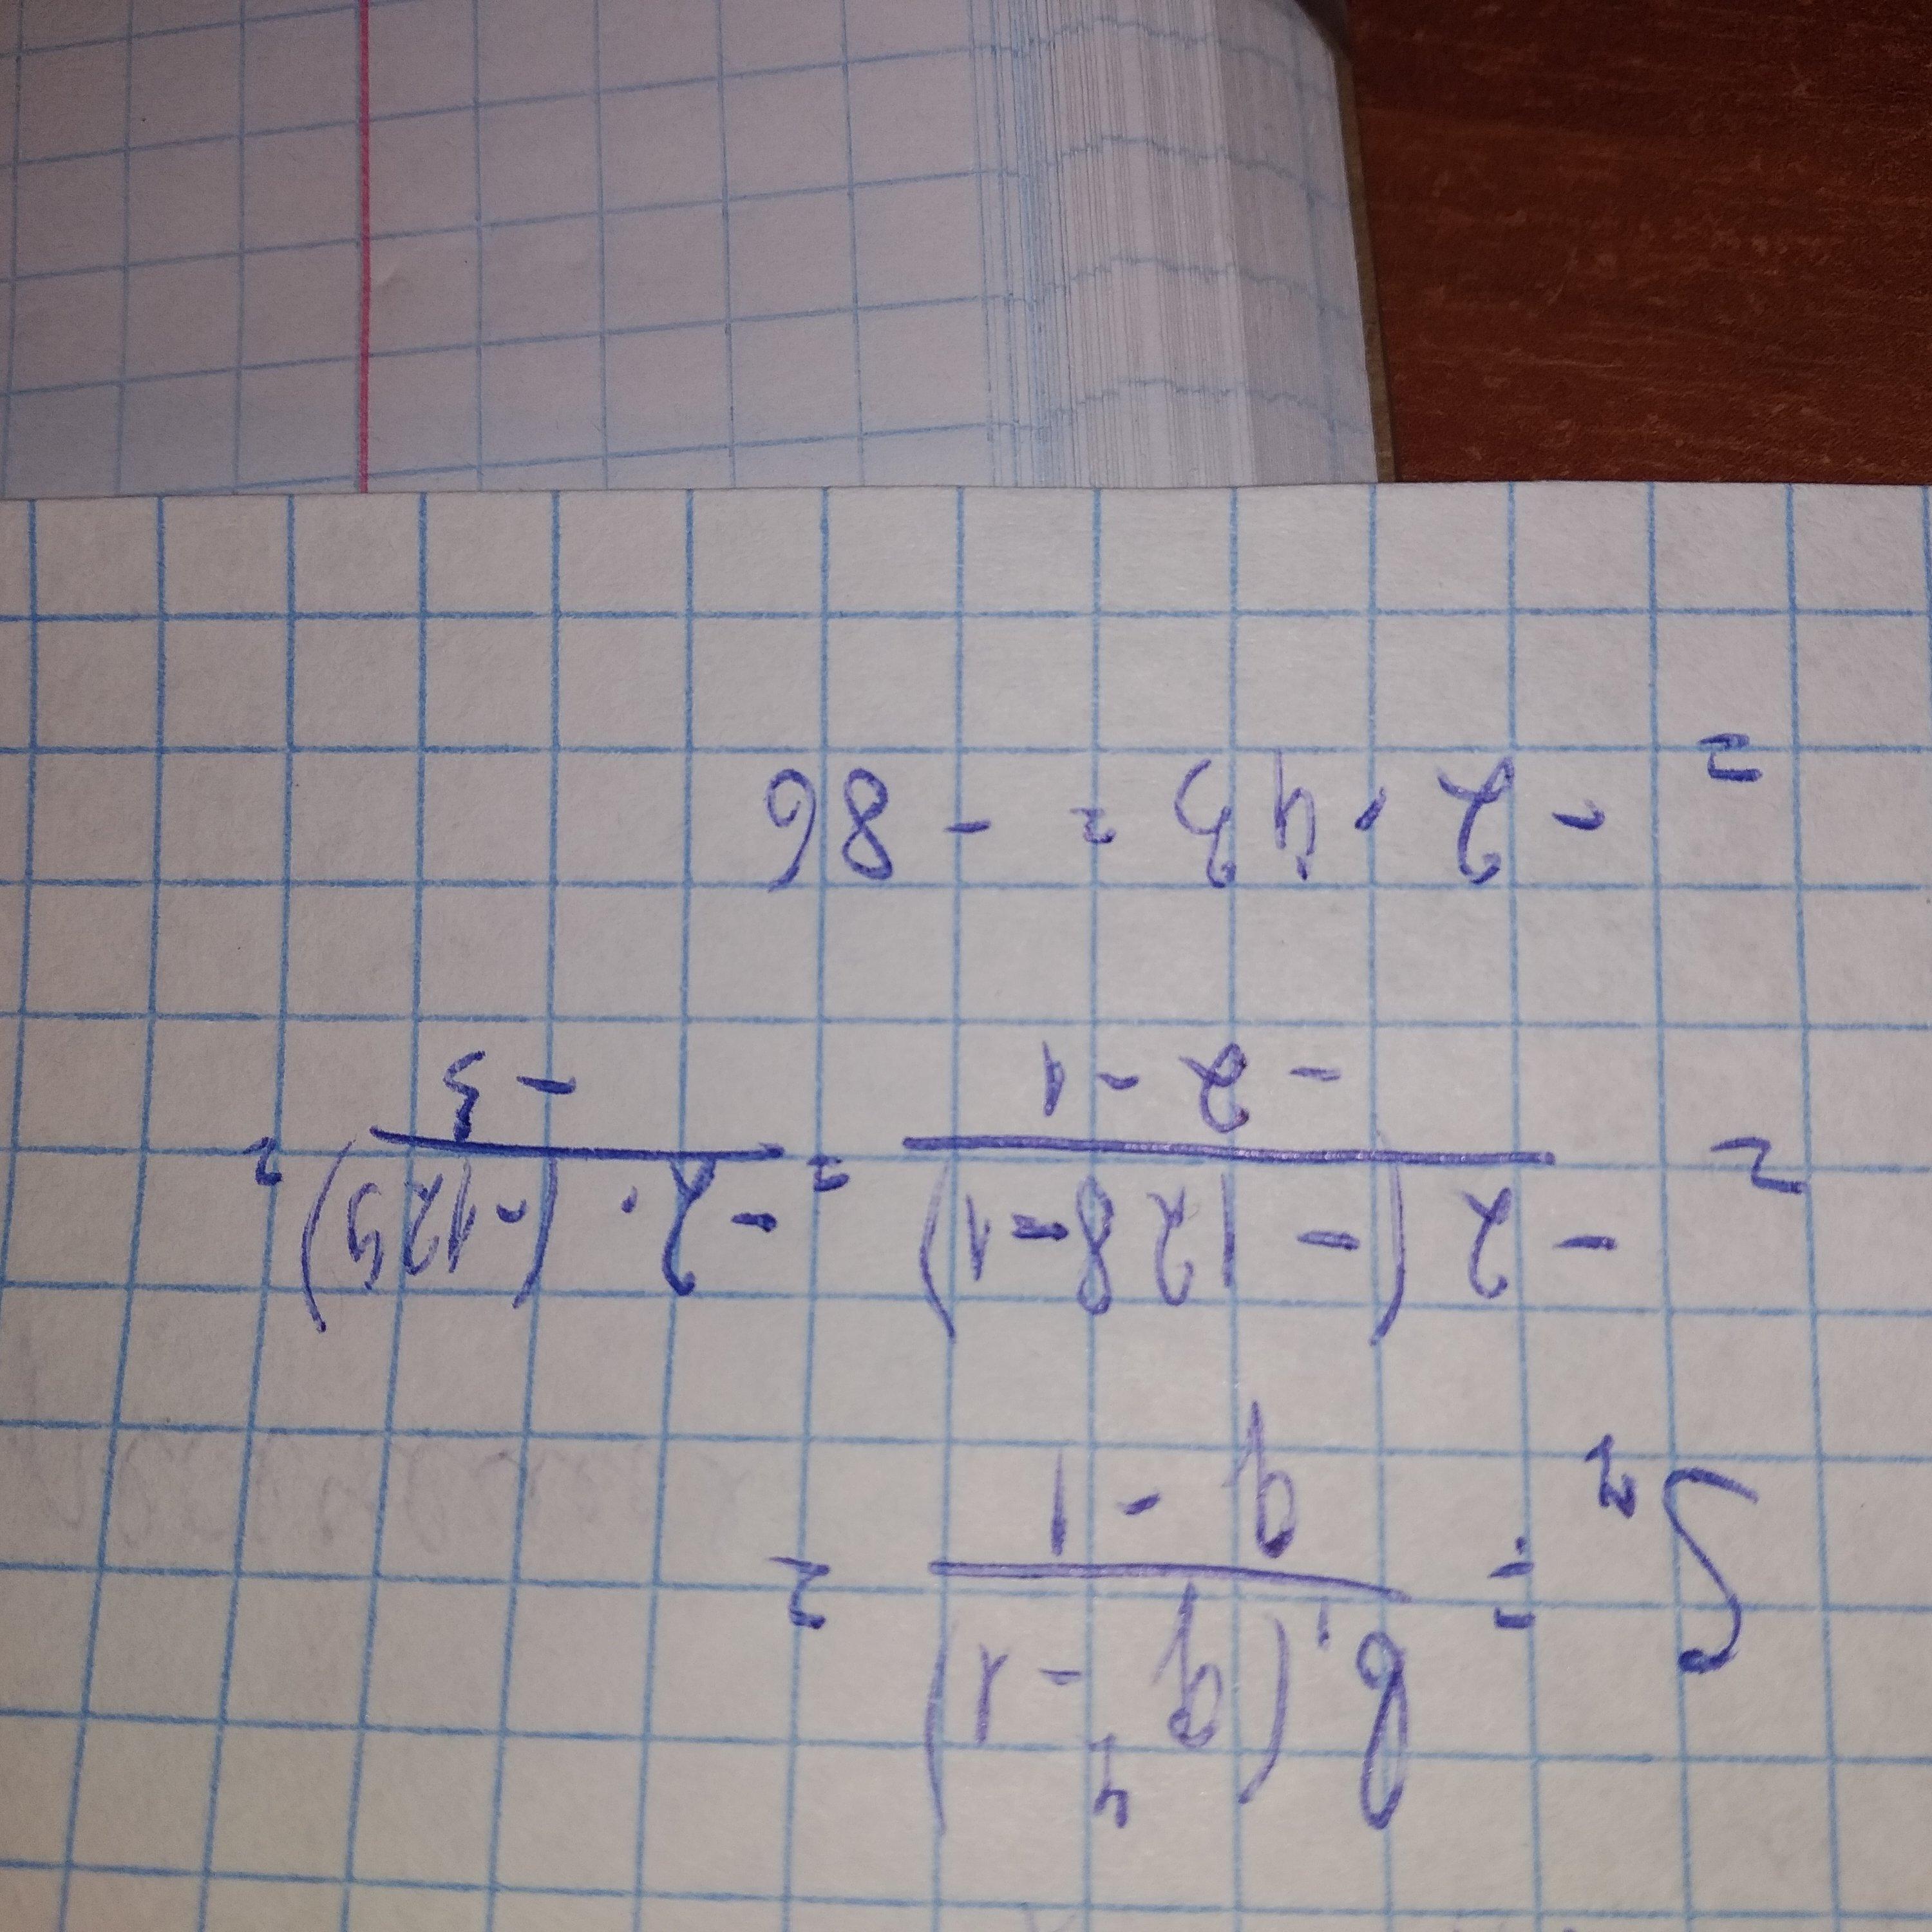 S₇ = b₁(q⁷ - 1) / (q - 1) =
= -2(-128-1) / (-2-1) = -2·(-129) / (-3) =
= -2·43 = -86